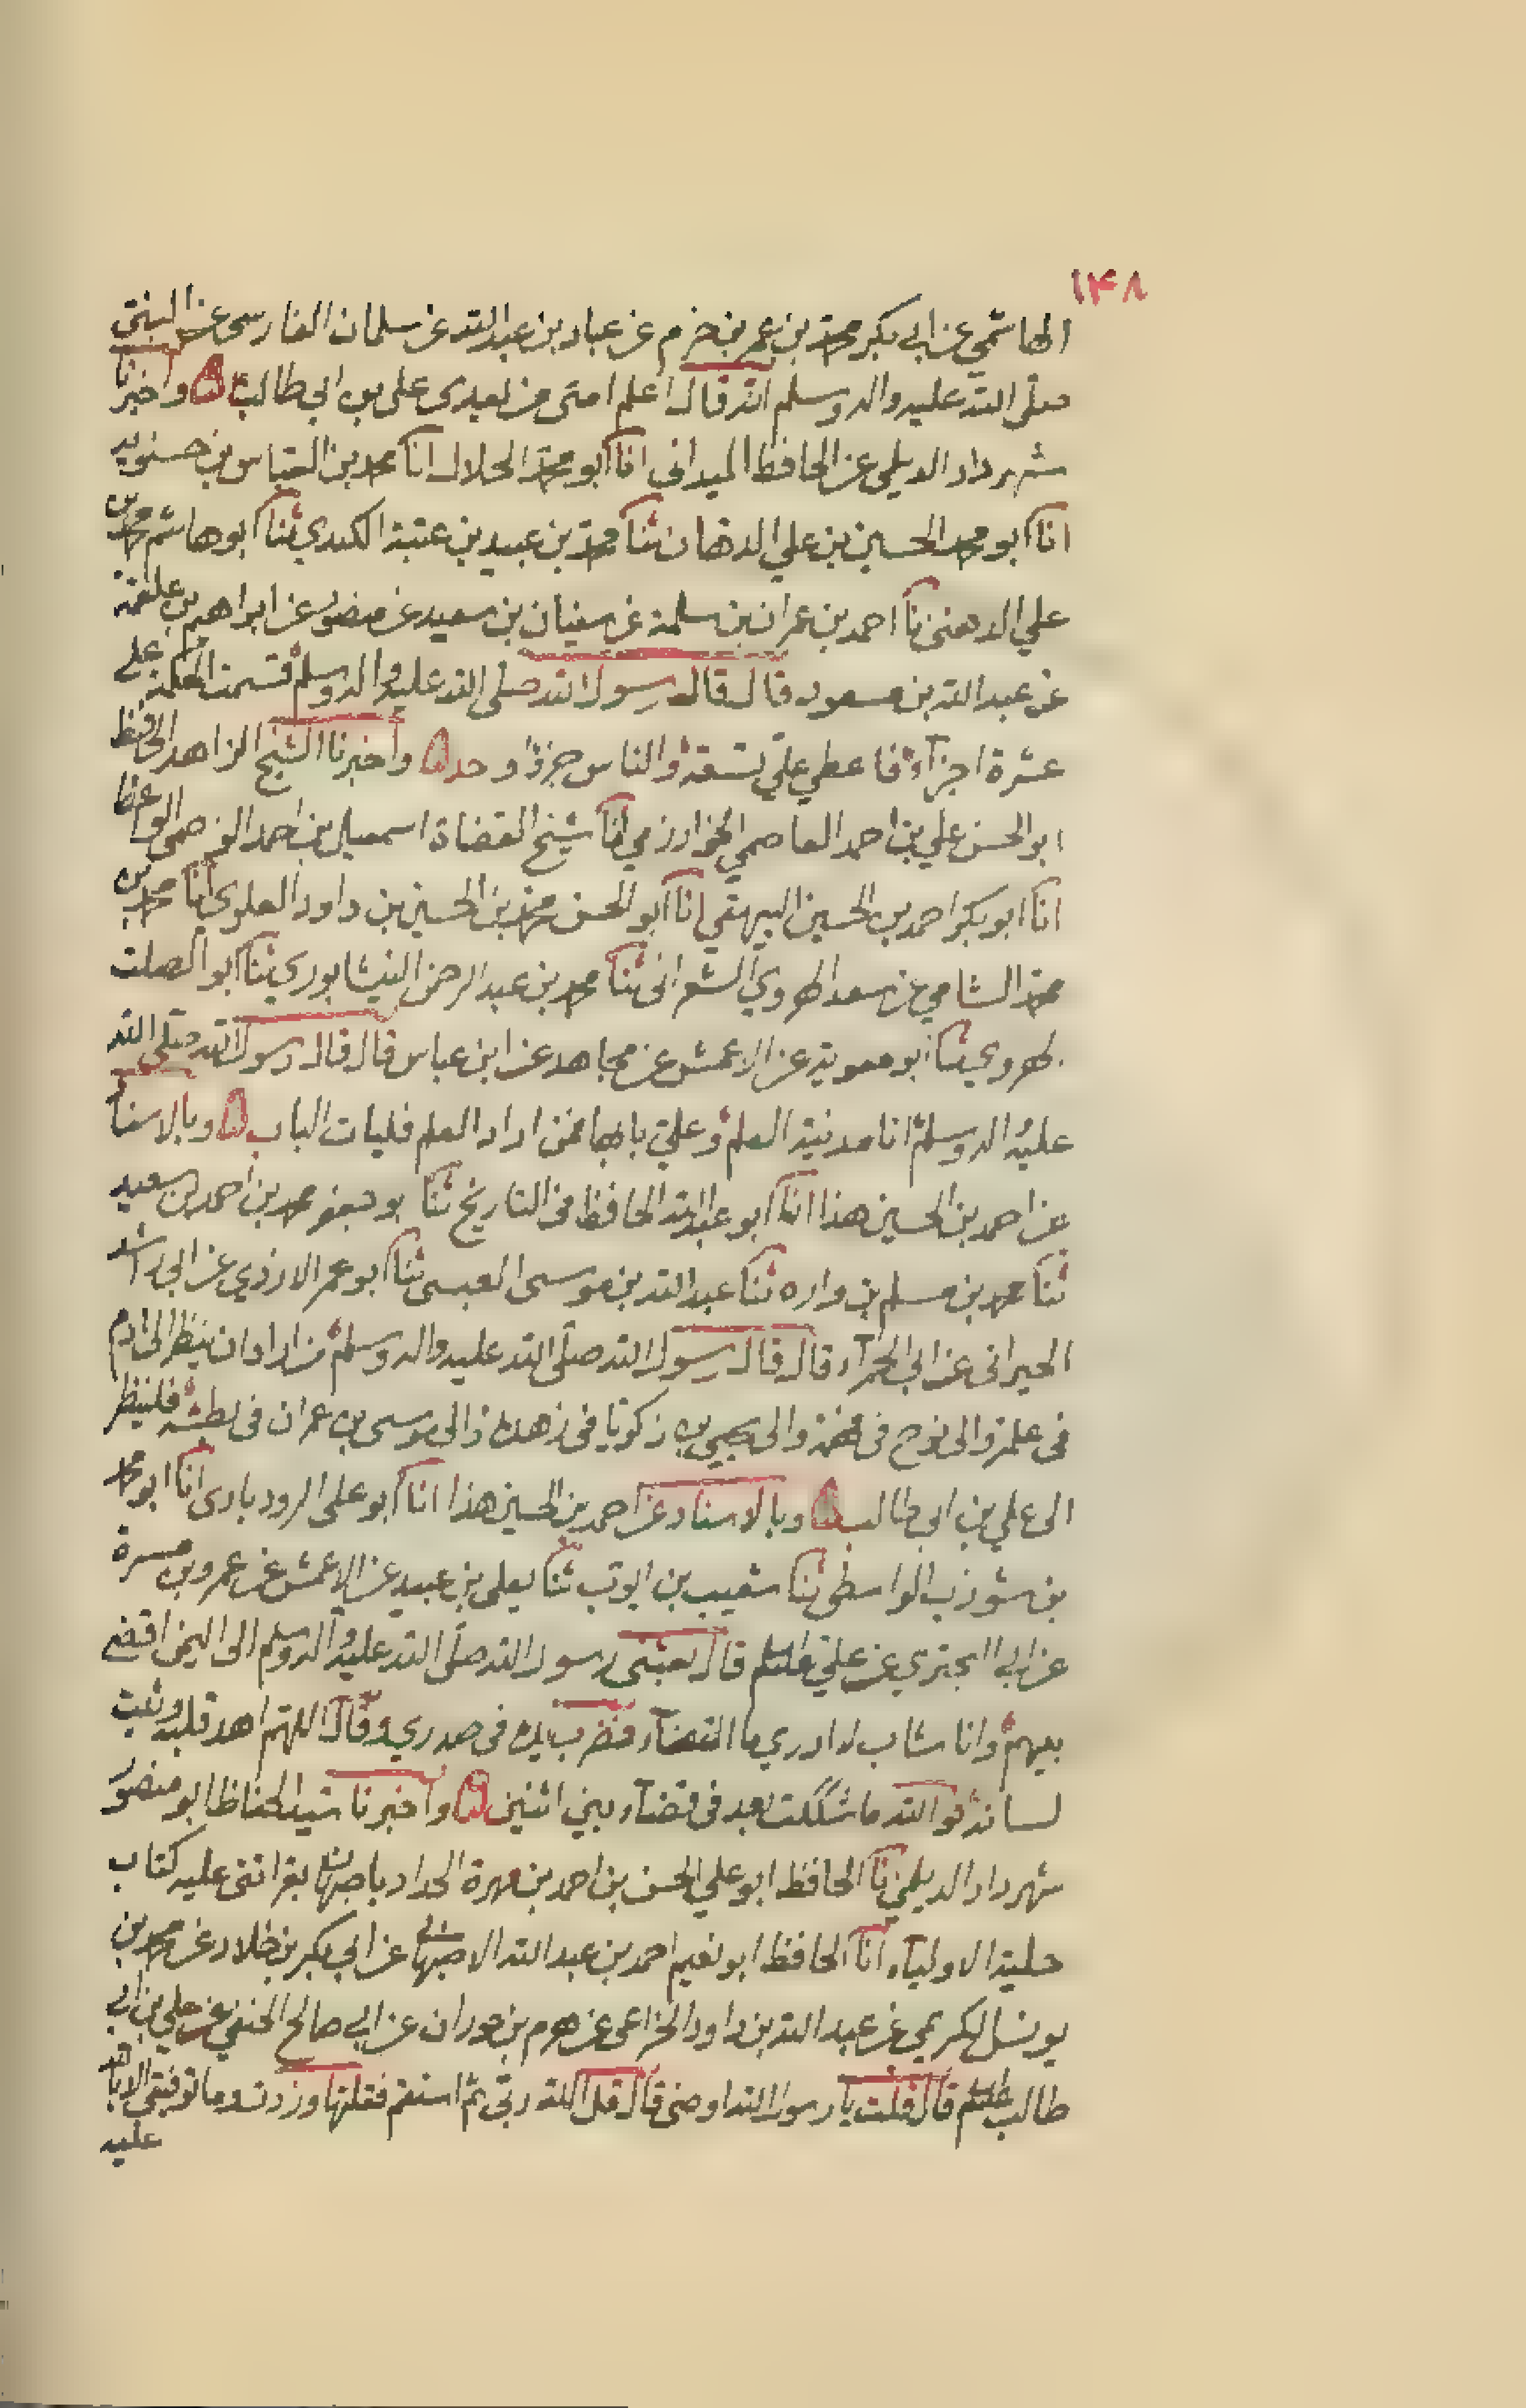 ۱۴۸
الهاشمي عن ابي بكر محمد بن عمر بن حزم عن عباد بن عبد الله عن سلمان الفارسي عن النبي
صلى الله عليه واله وسلم انه قال اعلم امتى من بعدى على بن ابي طالب واخبرنا
شهردار الديلمى عن الحافظ الميدانى انا ابو محمد الحلال انا محمد بن العباس بن حسنويه
انا ابو محمد الحسين بن علي الدهان ثنا محمد بن عبيد بن عتبة الكندي ثنا ابو هاشم محمد بن
علي الدهنى نا احمد بن عمران بن سلمة عن سفيان بن سعيد عن منصور عن ابراهيم بن علقمة
عن عبد الله بن مسعود قال قال رسول الله صلى الله عليه واله وسلم قسمت الحكمة على
عشرة اجزآء فاعطي علي تسعة والناس جزؤا وحد واخبرنا الشيخ الزاهد الحافظ
ابو الحسن علي بن احمد العاصمي الخوارزمي انا شيخ القضاة اسمعيل بن احمد الواعظ
انا ابو بكر احمد بن الحسين البيهقي انا ابو الحسن محمد بن الحسين بن داود العلوي انا محمد بن
محمد الشامي عن سعد الهروي الشعرانى ثنا محمد بن عبد الرحمن النيشابوري ثنا ابو الصلت
الهروي ثنا ابو معوية عن الاعمش عن مجاهد عن ابن عباس قال قال رسول الله صلى الله
عليه واله وسلم انا مدينة العلم وعلي بابها فمن اراد العلم فليات الباب وبالاسنا
عن احمد بن الحسين هذا انا ابو عبد الله الحافظ فى التاريخ ثنا ابو جعفر محمد بن احمد بن سعيد
ثنا محمد بن مسلم بن واره ثنا عبد الله بن موسى العبسى ثنا ابو عمر الازدي عن ابى راشد
الحيرانى عن ابي الحمرآء قال قال رسول الله صلى الله عليه واله وسلم من اراد ان ينظر الى ادم
فى علمه والى نوح فى فهمه والى يحيى بن زكريا فى زهده والى موسى بن عمران فى بطشه فلينظر
الى علي بن ابى طالب وبالاسناد عن احمد بن الحسين هذا انا ابو على الرودبارى انا ابو محمد
بن شوذب الواسطى ثنا شعيب بن ايوب ثنا يعلى بن عبيد عن الاعمش عن عمرو بن مسرة
عن ابي البختري عن علي قال بعثنى رسول الله صلى الله عليه واله وسلم الى اليمن اقضى
بينهم وانا شاب لا ادري ما القضآء فضرب يده فى صدري وقال اللهم اهد قلبه وثبت
لسانه فو الله ما شككت بعد فى قضآء بين اثنين واخبرنا سيد الحفاظ ابو منصور
شهردار الديلمي نا الحافظ ابو علي الحسن بن احمد بن مهرة الحداد باصبهان بقراتى عليه كتاب
حلية الاوليآء انا الحافظ ابو نعيم احمد بن عبد الله الاصبهانى عن ابي بكر بن خلاد عن محمد بن
يونس الكريمي عن عبد الله بن داود الخزاعى عن هرم بن حوران عن ابي صالح الحنفي عن علي بن ابى
طالب قال قلت يا رسول الله اوصنى قال قل الله ربى ثم استقم فقلتها وزدت وما توفيقى الا بالله
عليه